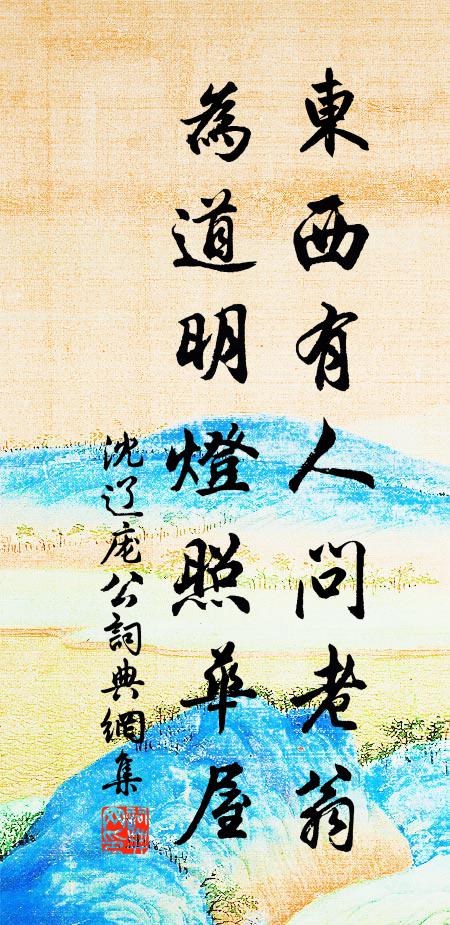 東西有人問老翁
為道明燈照華屋
沈辽庞公詞典網集